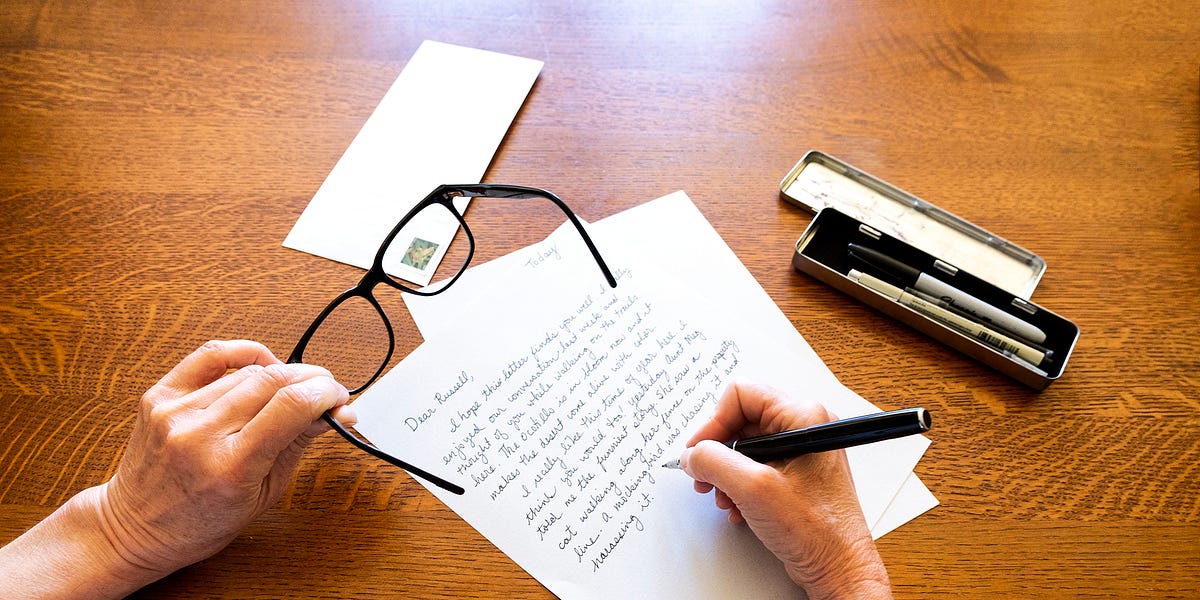 Today
Dear Russell,
I hope this letter finds you well. I really
enjoyed our conversation last week and
thought of you while walking on the trails
here. The Ocotillo is in bloom now and it
makes the desert come alive with color.
I really like this time of year here. I
think you would too! Yesterday Aunt Meg
told me the funniest story. She saw a
cat walking along her fence on the property
line. A mockingbird was chasing it and
harassing it